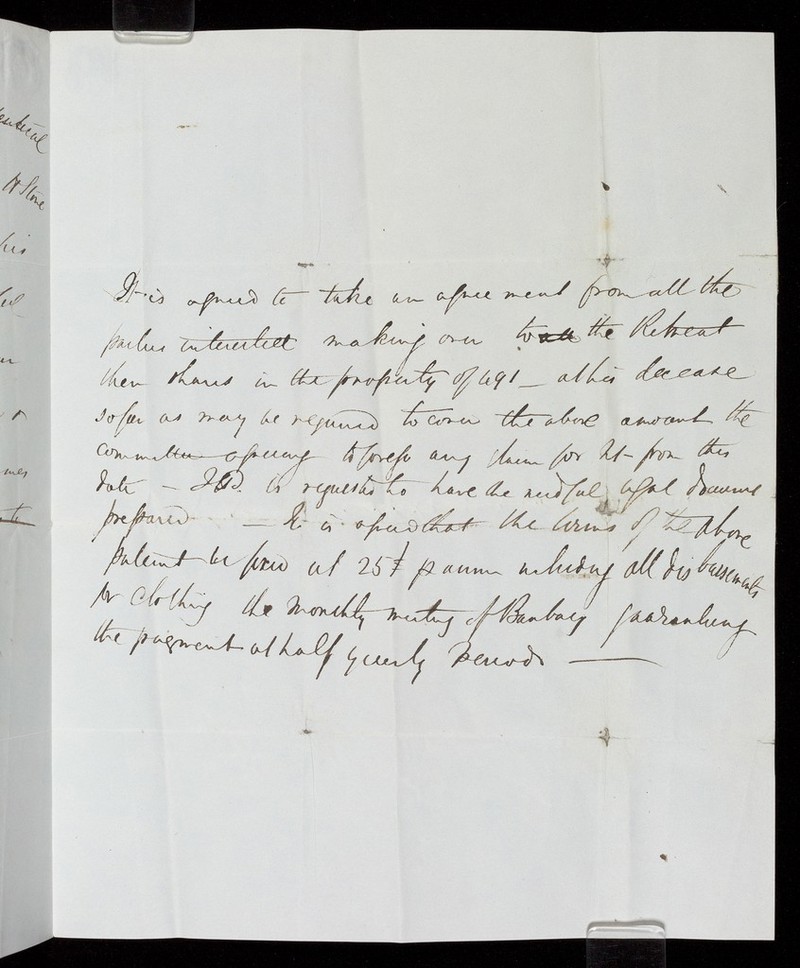 entical
H Stone
his
mes
It is agreed to take an agreement from all the
parties interested making over to all the Retreat
their shares in the property of 491 – at his decease
so far as may be required to cover the above amount the
committee agreeing to forego any claim for int from this
date – is requested to have the needful legal
prepared — It is agreed that the terms of the above
patient be fixed at 25£ p annum including all disbursements
for clothing the Monthly meeting of Banbury guaranteeing
the payment at half yearly Periods —